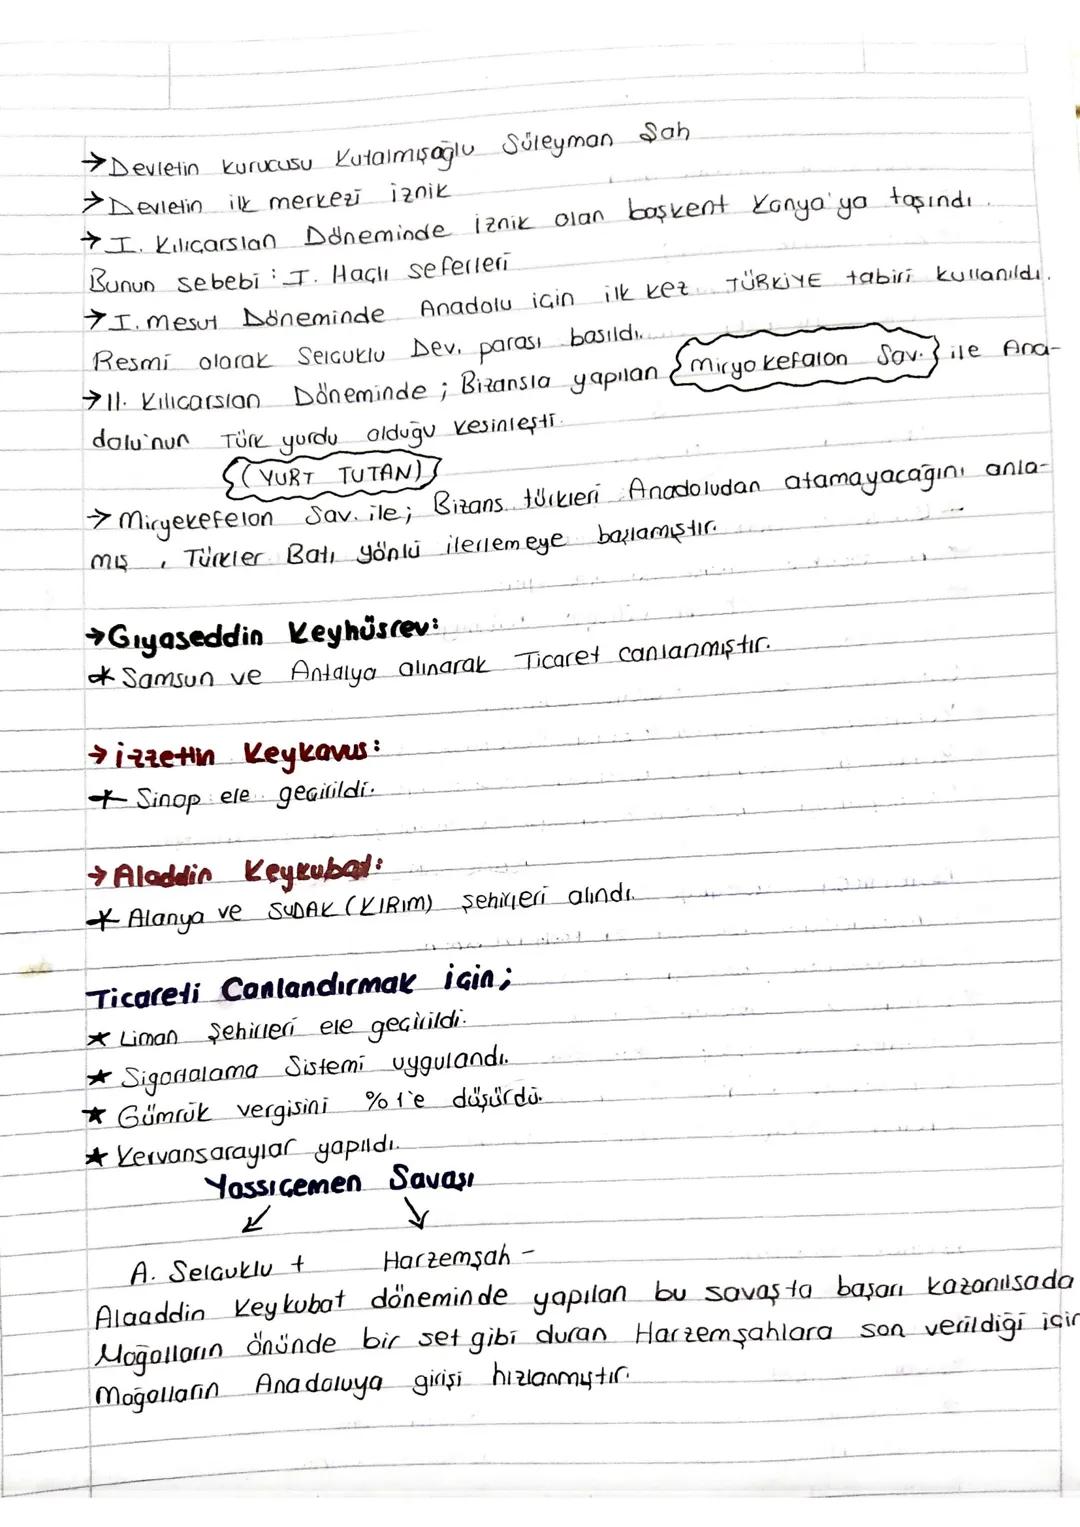 →Devletin kurucusu Kutalmışoğlu Süleyman Şah
→Devletin ilk merkezi iznik
→I. Kılıcarslan Döneminde iznik olan başkent Konya'ya taşındı.
Bunun sebebi: I. Haçlı seferleri
→I. mesut Döneminde Anadolu için ilk kez TÜRKİYE tabiri kullanıldı.
Resmi olarak Selcuklu Dev. parası basıldı.
→II. Kılıcarslan Döneminde; Bizansla yapılan miryokefalon Sav. ile Ana-
dolu'nun Türk yurdu olduğu kesinleşti.
(YURT TUTAN)
→Miryekefelon Sav. ile; Bizans türkleri Anadoludan atamayacağını anla-
mış, Türkler Batı yönlü ilerlemeye başlamıştır.
→Gıyaseddin Keyhüsrev:
* Samsun ve Antalya alınarak Ticaret canlanmıştır.
→izzettin Keykavus:
* Sinop ele geçirildi.
→Aladdin Keykubat:
* Alanya ve SUDAK (KIRIM) şehirleri alındı.
Ticareti Canlandırmak için;
★ Liman Şehirleri ele geçirildi.
★ Sigortalama Sistemi uygulandı.
★ Gümrük vergisini %1'e düşürdü.
★ Kervansaraylar yapıldı.
Yassıçemen Savaşı
↙ ↘
A. Selçuklu + Harzemşah -
Alaaddin Keykubat döneminde yapılan bu savaşta başarı kazanılsada
Moğolların önünde bir set gibi duran Harzemşahlara son verildiği için
Moğolların Anadoluya girişi hızlanmıştır.